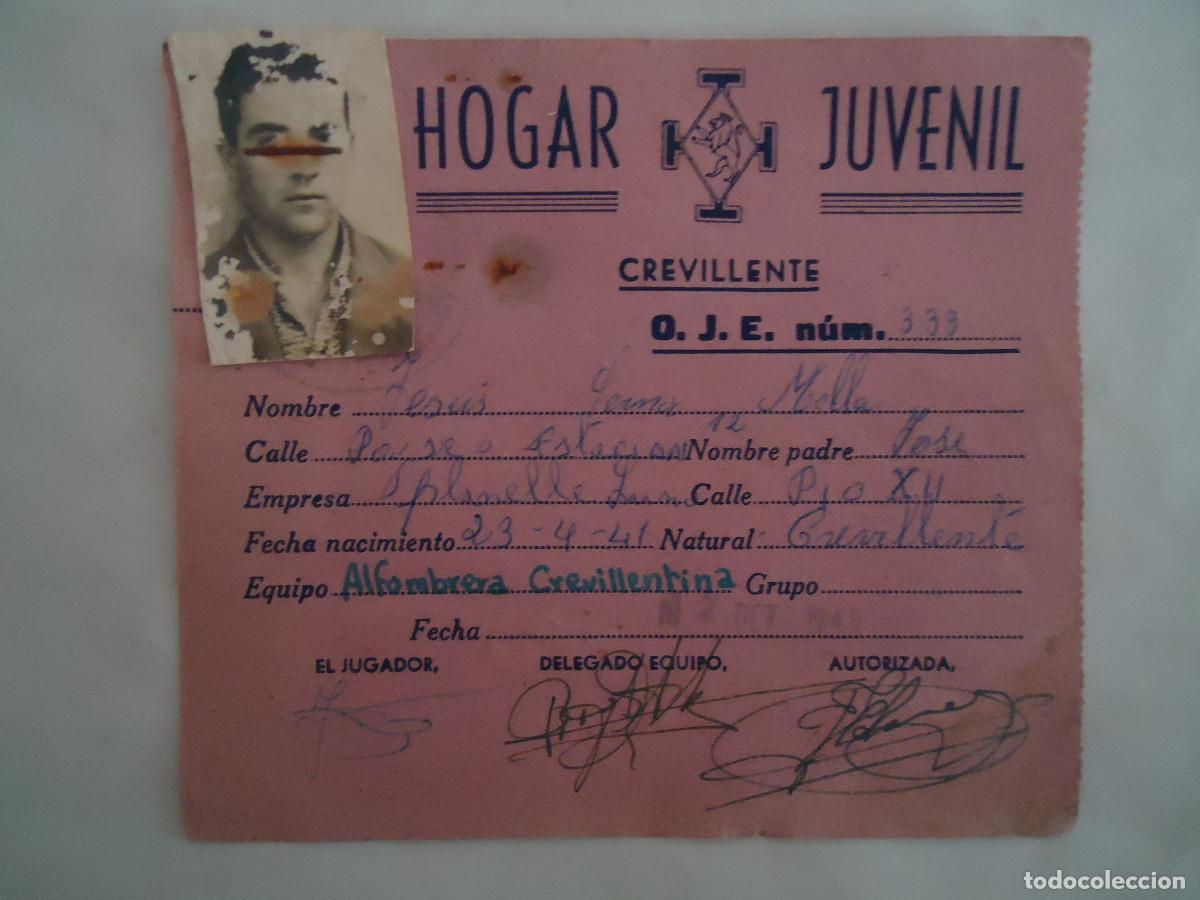 HOGAR JUVENIL
CREVILLENTE
O. J. E. núm. 333
Nombre Jesús Molla
Calle Paseo Estacion 12 Nombre padre Jose
Empresa Calle Pio XII
Fecha nacimiento 23-4-41 Natural Crevillente
Equipo Alfombrera Crevillentina Grupo
Fecha
EL JUGADOR, DELEGADO EQUIPO, AUTORIZADA,
todocoleccion